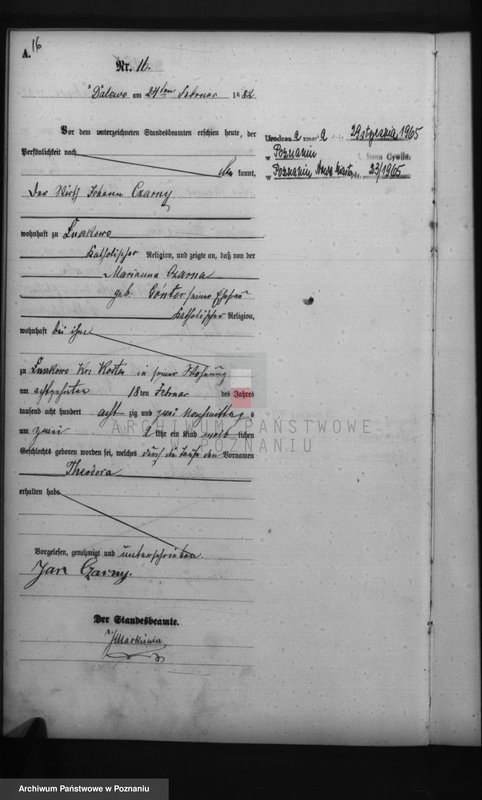 A. 16
Nr. 16.
Dalewo am 24ten Februar 1882
Vor dem unterzeichneten Standesbeamten erschien heute, der
Persönlichkeit nach
kannt,
Der Wirth Johann Czarny
wohnhaft zu
katholischer Religion, und zeigte an, daß von der
Marianna Czarna
geb. Günter seiner Ehefrau
katholischer Religion,
wohnhaft bei ihm
zu in seiner Wohnung
am achtzehnten 18ten Februar des Jahres
tausend acht hundert acht zig und zwei Nachmittag s
um zwei 2 Uhr ein Kind weib lichen
Geschlechts geboren worden sei, welches durch die Taufe den Vornamen
Theodora
erhalten habe.
Vorgelesen, genehmigt und unterschrieben
Jan Czarny.
Der Standesbeamte.
29 stycznia 1965
w Poznaniu
Cywiln.
w Poznaniu, 23/1965
ARCHIWUM PAŃSTWOWE
W POZNANIU
Archiwum Państwowe w Poznaniu